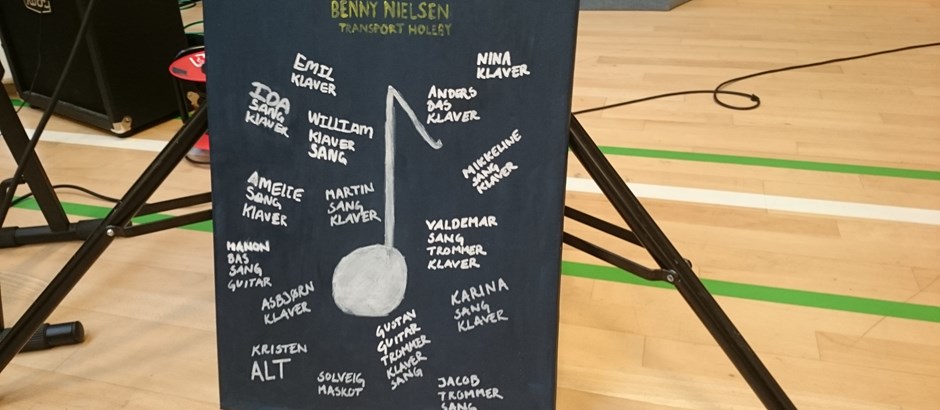 BENNY NIELSEN
TRANSPORT HOLEBY
EMIL
KLAVER
NINA
KLAVER
IDA
SANG
KLAVER
ANDERS
BAS
KLAVER
WILLIAM
KLAVER
SANG
MIKKELINE
SANG
KLAVER
AMELIE
SANG
KLAVER
MARTIN
SANG
KLAVER
VALDEMAR
SANG
TROMMER
KLAVER
MANON
BAS
SANG
GUITAR
ASBJØRN
KLAVER
KARINA
SANG
KLAVER
GUSTAV
GUITAR
TROMMER
KLAVER
SANG
KRISTEN
ALT
SOLVEIG
MASKOT
JACOB
TROMMER
SANG